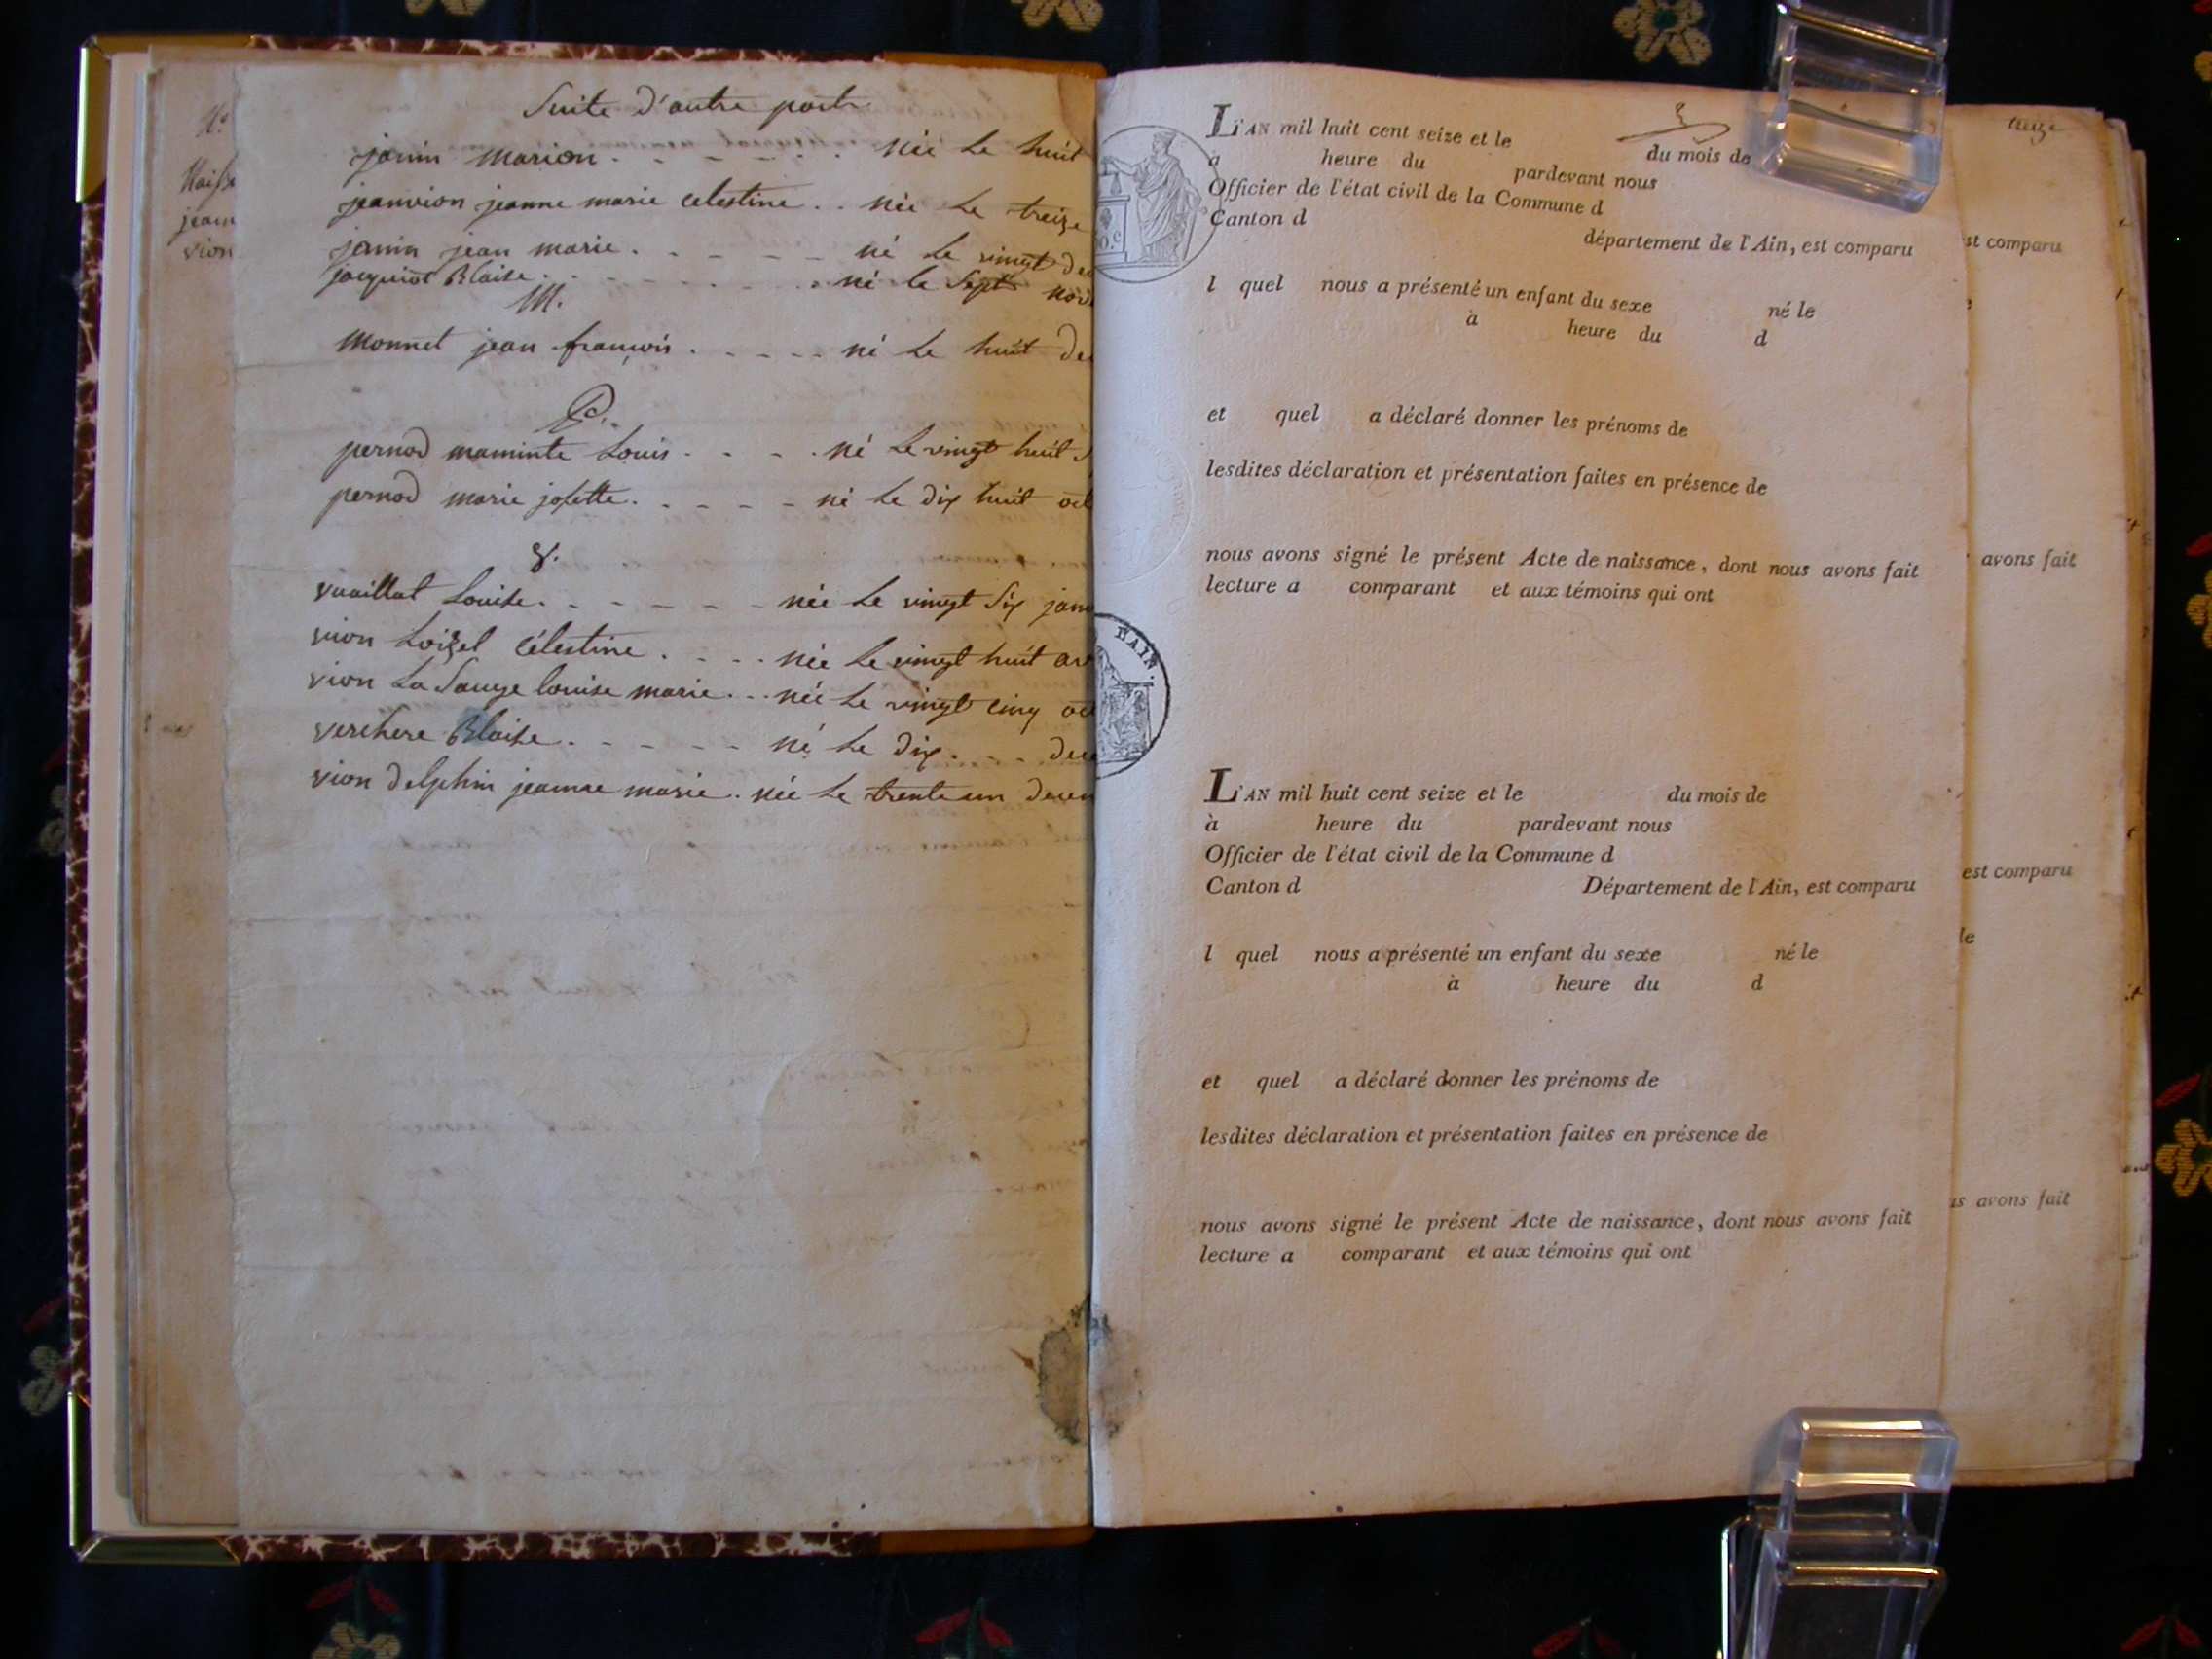 Nº
Naiss
jean
vion
Suite d'autre part
janin marion . - - - . . née le huit
janvion jeanne marie celestine . . née le treize
janin jean marie . - - - - né le vingt de
jacquiot Blaise . - - - - . né le sept nov
M.
Monnet jean françois . - - - - né le huit de
P.
pernod maminte Louis - - - . né le vingt huit
pernod marie josette . - - - - né le dix huit oct
V.
vuaillat Louise . - - - - - née le vingt six janv
vion Loizel célestine . - - . née le vingt huit av
vion La Sauge louise marie . . . née le vingt cinq oct
verchere Blaise . - - - - - né le dix . - - dec
vion delphin jeanne marie . née le trente un decem
L'AN mil huit cent seize et le du mois de
à heure du pardevant nous
Officier de l'état civil de la Commune d
Canton d
département de l'Ain, est comparu
l quel nous a présenté un enfant du sexe né le
à heure du d
et quel a déclaré donner les prénoms de
lesdites déclaration et présentation faites en présence de
nous avons signé le présent Acte de naissance, dont nous avons fait
lecture a comparant et aux témoins qui ont
L'AN mil huit cent seize et le du mois de
à heure du pardevant nous
Officier de l'état civil de la Commune d
Canton d Département de l'Ain, est comparu
l quel nous a présenté un enfant du sexe né le
à heure du d
et quel a déclaré donner les prénoms de
lesdites déclaration et présentation faites en présence de
nous avons signé le présent Acte de naissance, dont nous avons fait
lecture a comparant et aux témoins qui ont
treize
st comparu
avons fait
est comparu
le
us avons fait